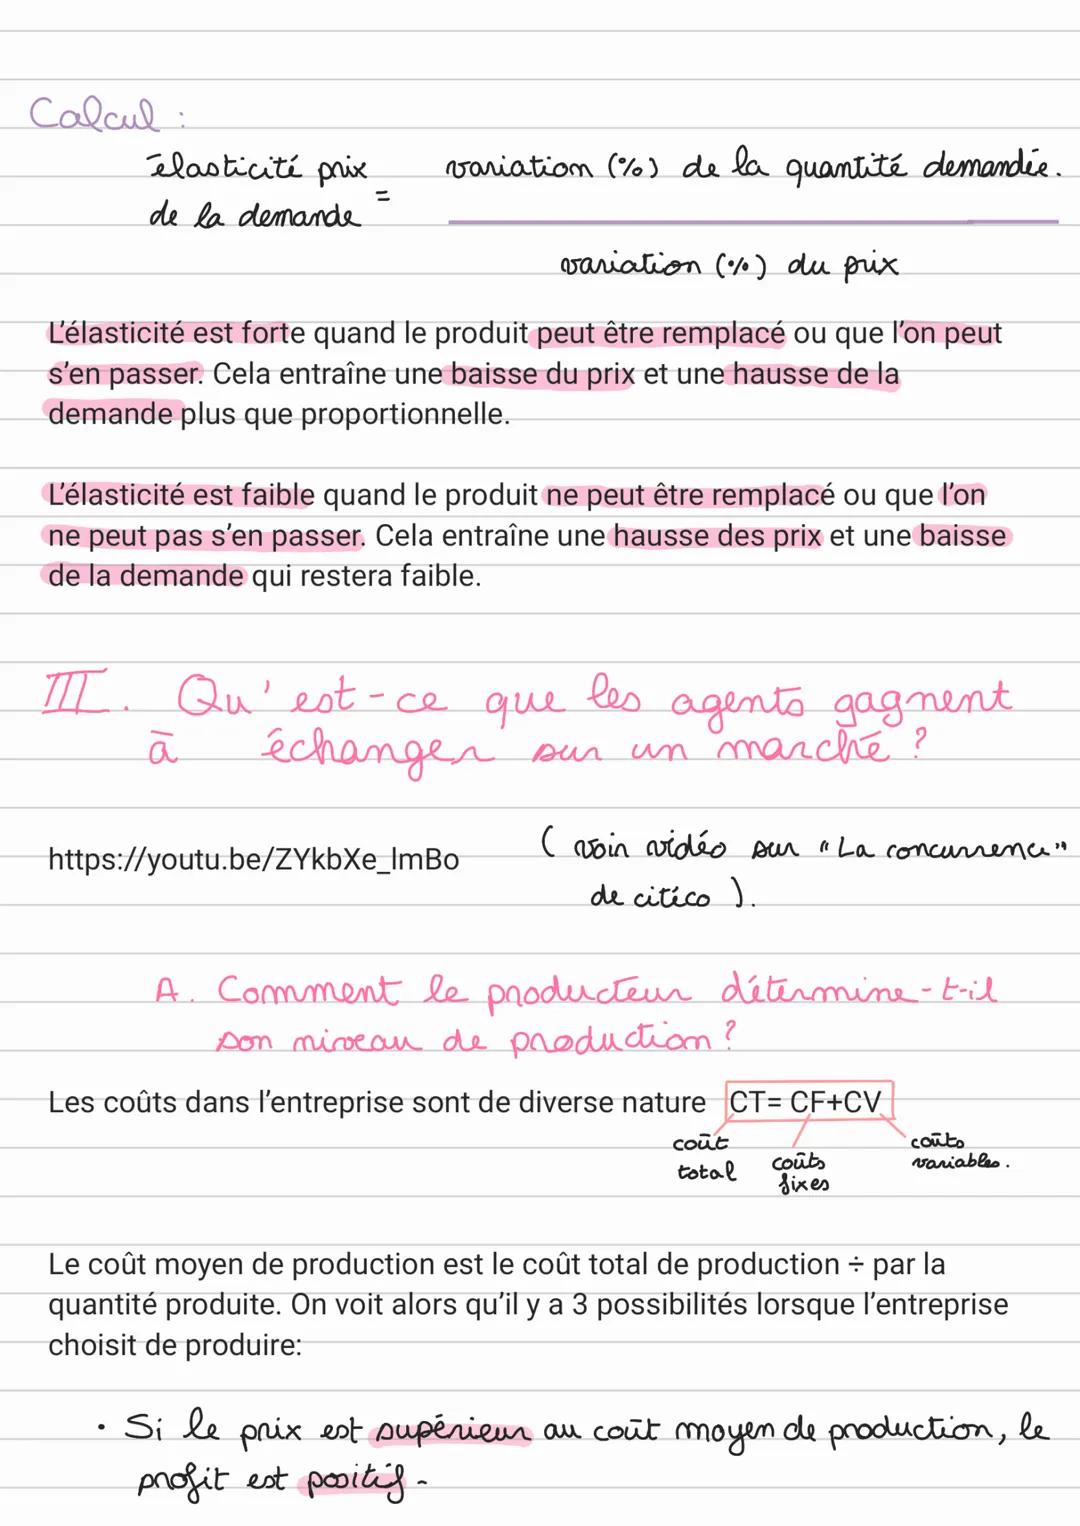 Calcul :
élasticité prix
de la demande
=
variation (%) de la quantité demandée.
variation (%) du prix
L'élasticité est forte quand le produit peut être remplacé ou que l'on peut
s'en passer. Cela entraîne une baisse du prix et une hausse de la
demande plus que proportionnelle.
L'élasticité est faible quand le produit ne peut être remplacé ou que l'on
ne peut pas s'en passer. Cela entraîne une hausse des prix et une baisse
de la demande qui restera faible.
III. Qu'est-ce que les agents gagnent
à échanger sur un marché ?
https://youtu.be/ZYkbXe_lmBo
( voir vidéo sur "La concurrence"
de citéco ).
A. Comment le producteur détermine-t-il
son niveau de production ?
Les coûts dans l'entreprise sont de diverse nature CT= CF+CV
coût
total
coûts
fixes
coûts
variables.
Le coût moyen de production est le coût total de production ÷ par la
quantité produite. On voit alors qu'il y a 3 possibilités lorsque l'entreprise
choisit de produire:
• Si le prix est supérieur au coût moyen de production, le
profit est positif.